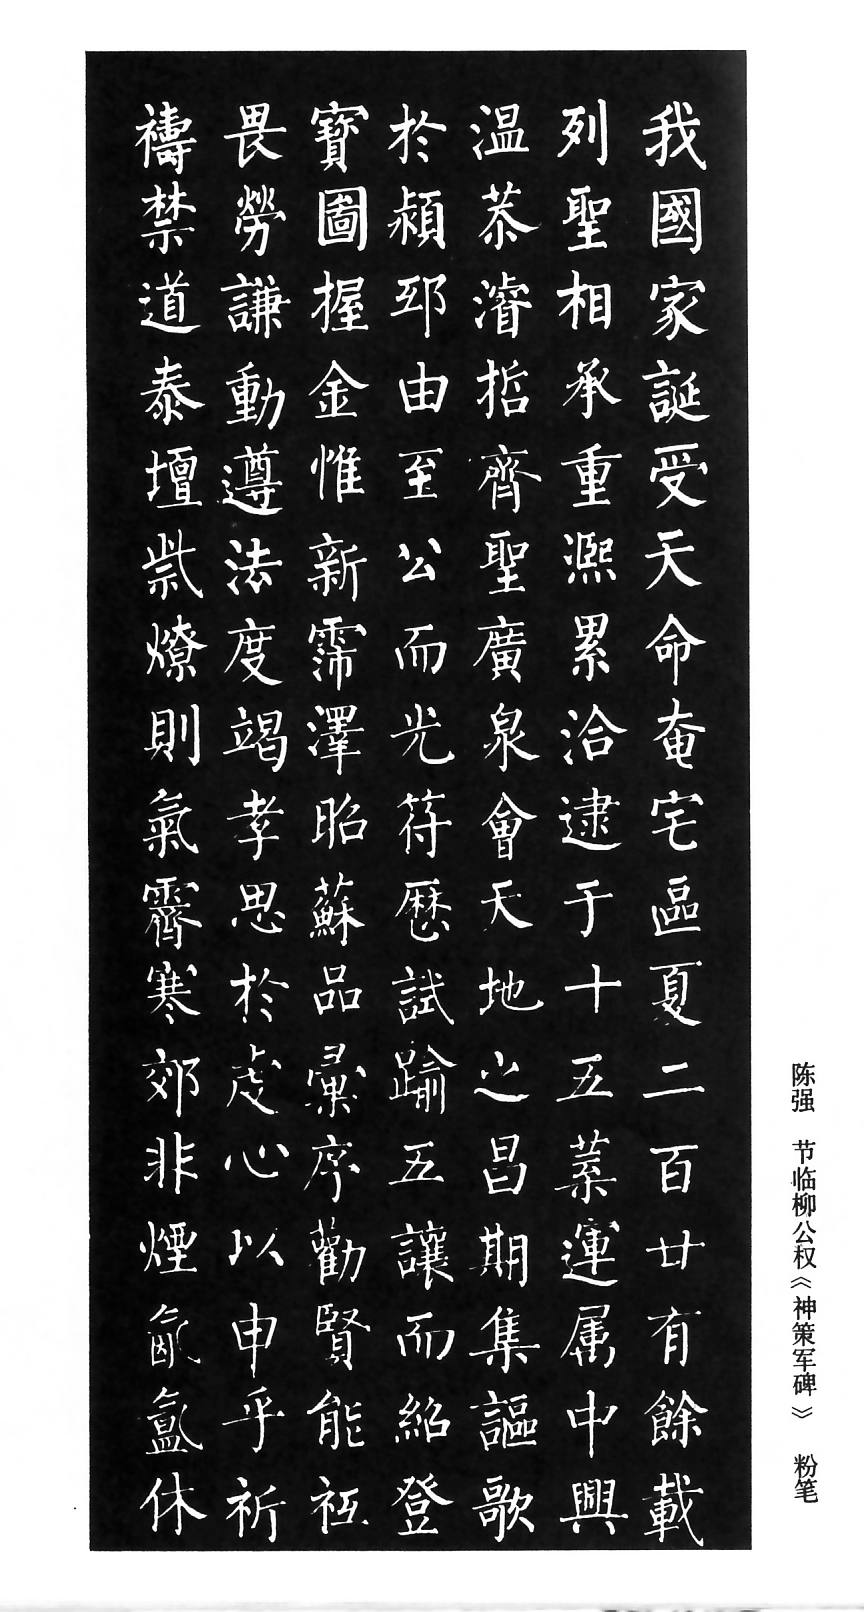 我國家誕受天命奄宅區夏二百廿有餘載
列聖相承重熈累洽逮于十五葉運属中興
温恭濬哲齊聖廣泉會天地之昌期集謳歌
於潁邸由至公而光符歷試踰五讓而紹登
寶圖握金惟新霈澤昭蘇品彙序勸賢能祗
畏勞謙動遵法度竭孝思於虔心以申乎祈
禱禁道泰壇祡燎則氣霽寒郊非煙氤氲休
陈强　节临柳公权《神策军碑》　粉笔